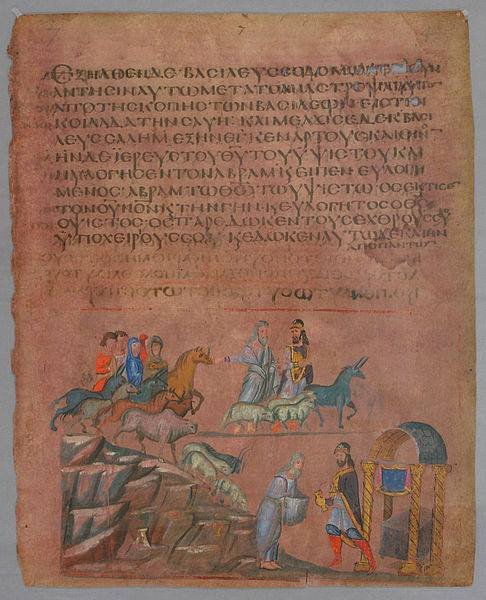 7
ΕΞΗΛΘΕΝΔΕΒΑΣΙΛΕΥΣΣΟΔΟΜΩΝ
ΑΝΤΗΣΙΝΑΥΤΩΜΕΤΑΤΟΑΝΑΣΤΡΕΨΑΙ
ΑΠΟΤΗΣΚΟΠΗΣΤΩΝΒΑΣΙΛΕΩΝ·ΕΙΣΤΗΝ
ΚΟΙΛΑΔΑΤΗΝΣΑΥΗ·ΚΑΙΜΕΛΧΙΣΕΔΕΚΒΑΣΙ
ΛΕΥΣΣΑΛΗΜΕΞΗΝΕΓΚΕΝΑΡΤΟΥΣΚΑΙΟΙΝΟΝ
ΗΝΔΕΙΕΡΕΥΣΤΟΥΘΥΤΟΥΥΨΙΣΤΟΥΚΑΙ
ΗΥΛΟΓΗΣΕΝΤΟΝΑΒΡΑΜΚΑΙΕΙΠΕΝΕΥΛΟΓΗ
ΜΕΝΟΣ·ΑΒΡΑΜΤΩΘΩΤΩΥΨΙΣΤΩΟΣΕΚΤΙΣΕ
ΤΟΝΟΥΝΟΝΚΤΗΝΓΗΝΚΕΥΛΟΓΗΤΟΣΟΘΣ
ΟΥΨΙΣΤΟΣ·ΟΣΠΑΡΕΔΩΚΕΝΤΟΥΣΕΧΘΡΟΥΣΣΟΥ
ΥΠΟΧΕΙΡΟΥΣΣΟΙ ΚΕΔΩΚΕΝΑΥΤΩΔΕΚΑΤΗΝ
ΑΠΟΠΑΝΤΩΝ